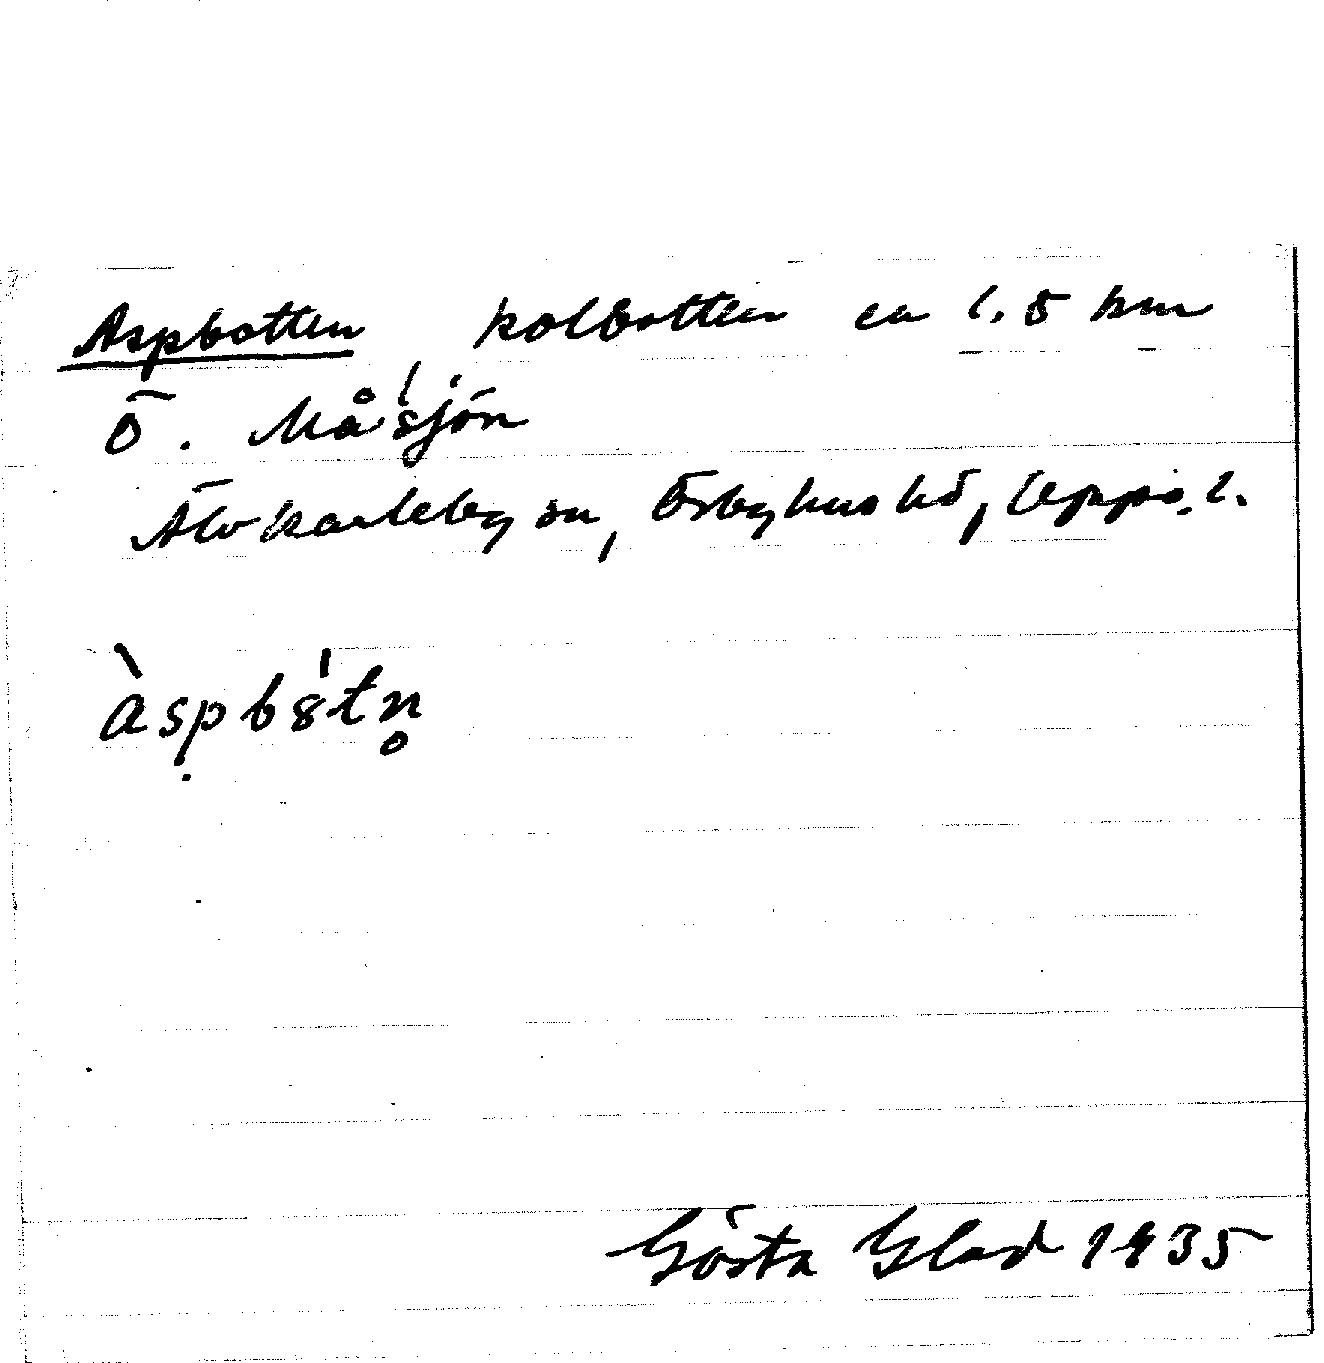 Aspbotten, kolbotten ca 1.5 km
Ö. Måsjön
Älvkarleby sn, Örbyhus hd, Upps. l.
àspb8́tn̥
Gösta Glad 1935